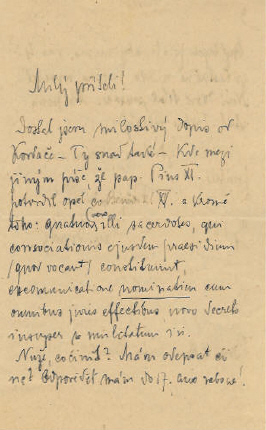 Milý příteli!
Došel jsem milostivý dopis od
Kordače – Ty snad také – Kde mezi
jiným píše, že pap. Pius XI.
potvrdil opět XV. a kromě
toho: quatuor illi sacerdotes, qui
consociationis ejusdem praesidium
(quod vocant) constituunt,
excommunicatione nominatim cum
omnibus juris effectibus novo Decreto
insuper
Nuže, co činit? Mám odepsat či
ne? Odpovědět mám do 17. ano nebo ne!